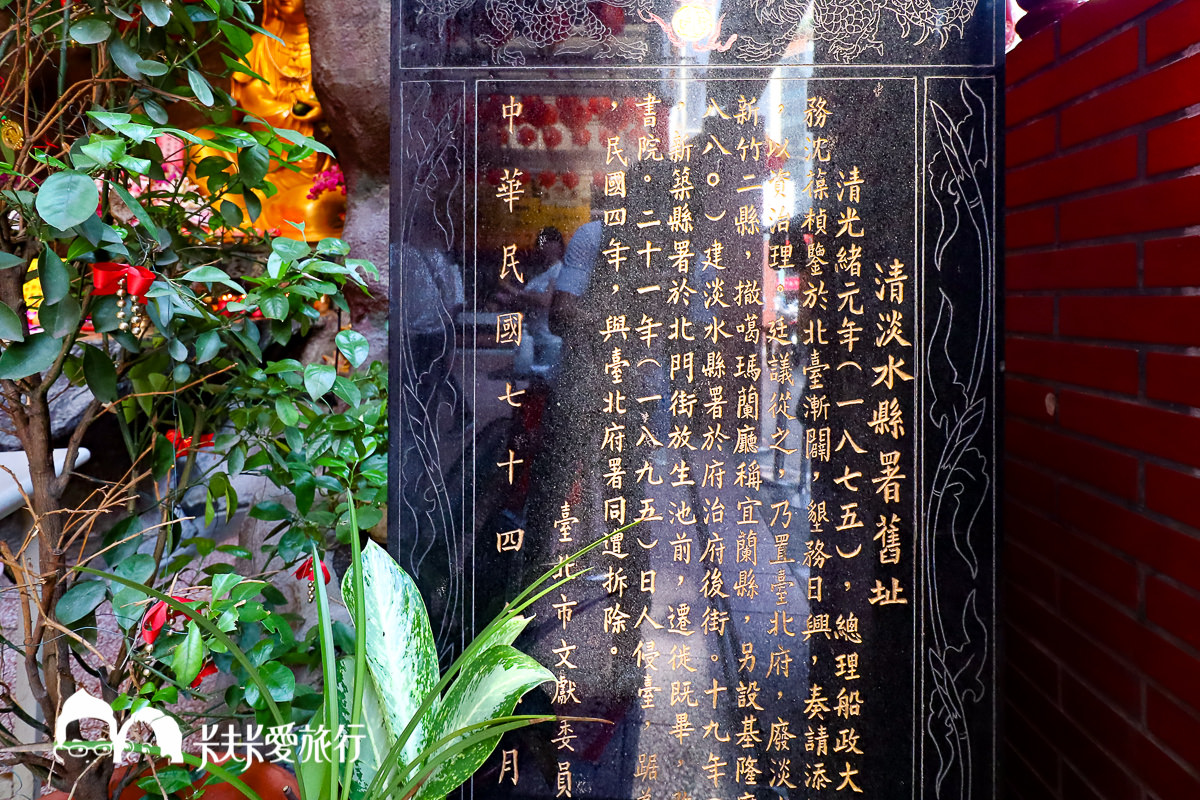 清淡水縣署舊址
清光緒元年(一八七五),總理船政大
務沈葆楨鑒於北臺漸闢,墾務日興,奏請添
,以資治理。廷議從之,乃置臺北府,廢淡
新竹二縣,撤噶瑪蘭廳稱宜蘭縣,另設基隆
八八○)建淡水縣署於府治府後街。十九年
,新築縣署於北門街放生池前,遷徙既畢,
書院。二十一年(一八九五)日人侵臺,踞
,民國四年,與臺北府署同遭拆除。
臺北市文獻委員
中華民國七十四 月
卡夫卡愛旅行